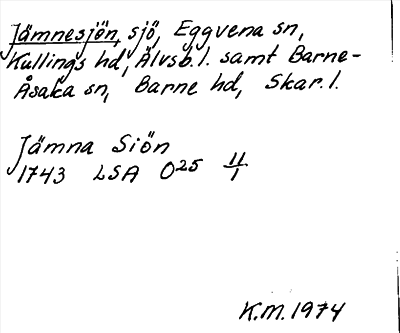 Jämnesjön, sjö, Eggvena sn,
Kullings hd, Älvsb.l. samt Barne-
Åsaka sn, Barne hd, Skar.l.
Jämna Siön
1743 LSA O25 11/1
K.M. 1974